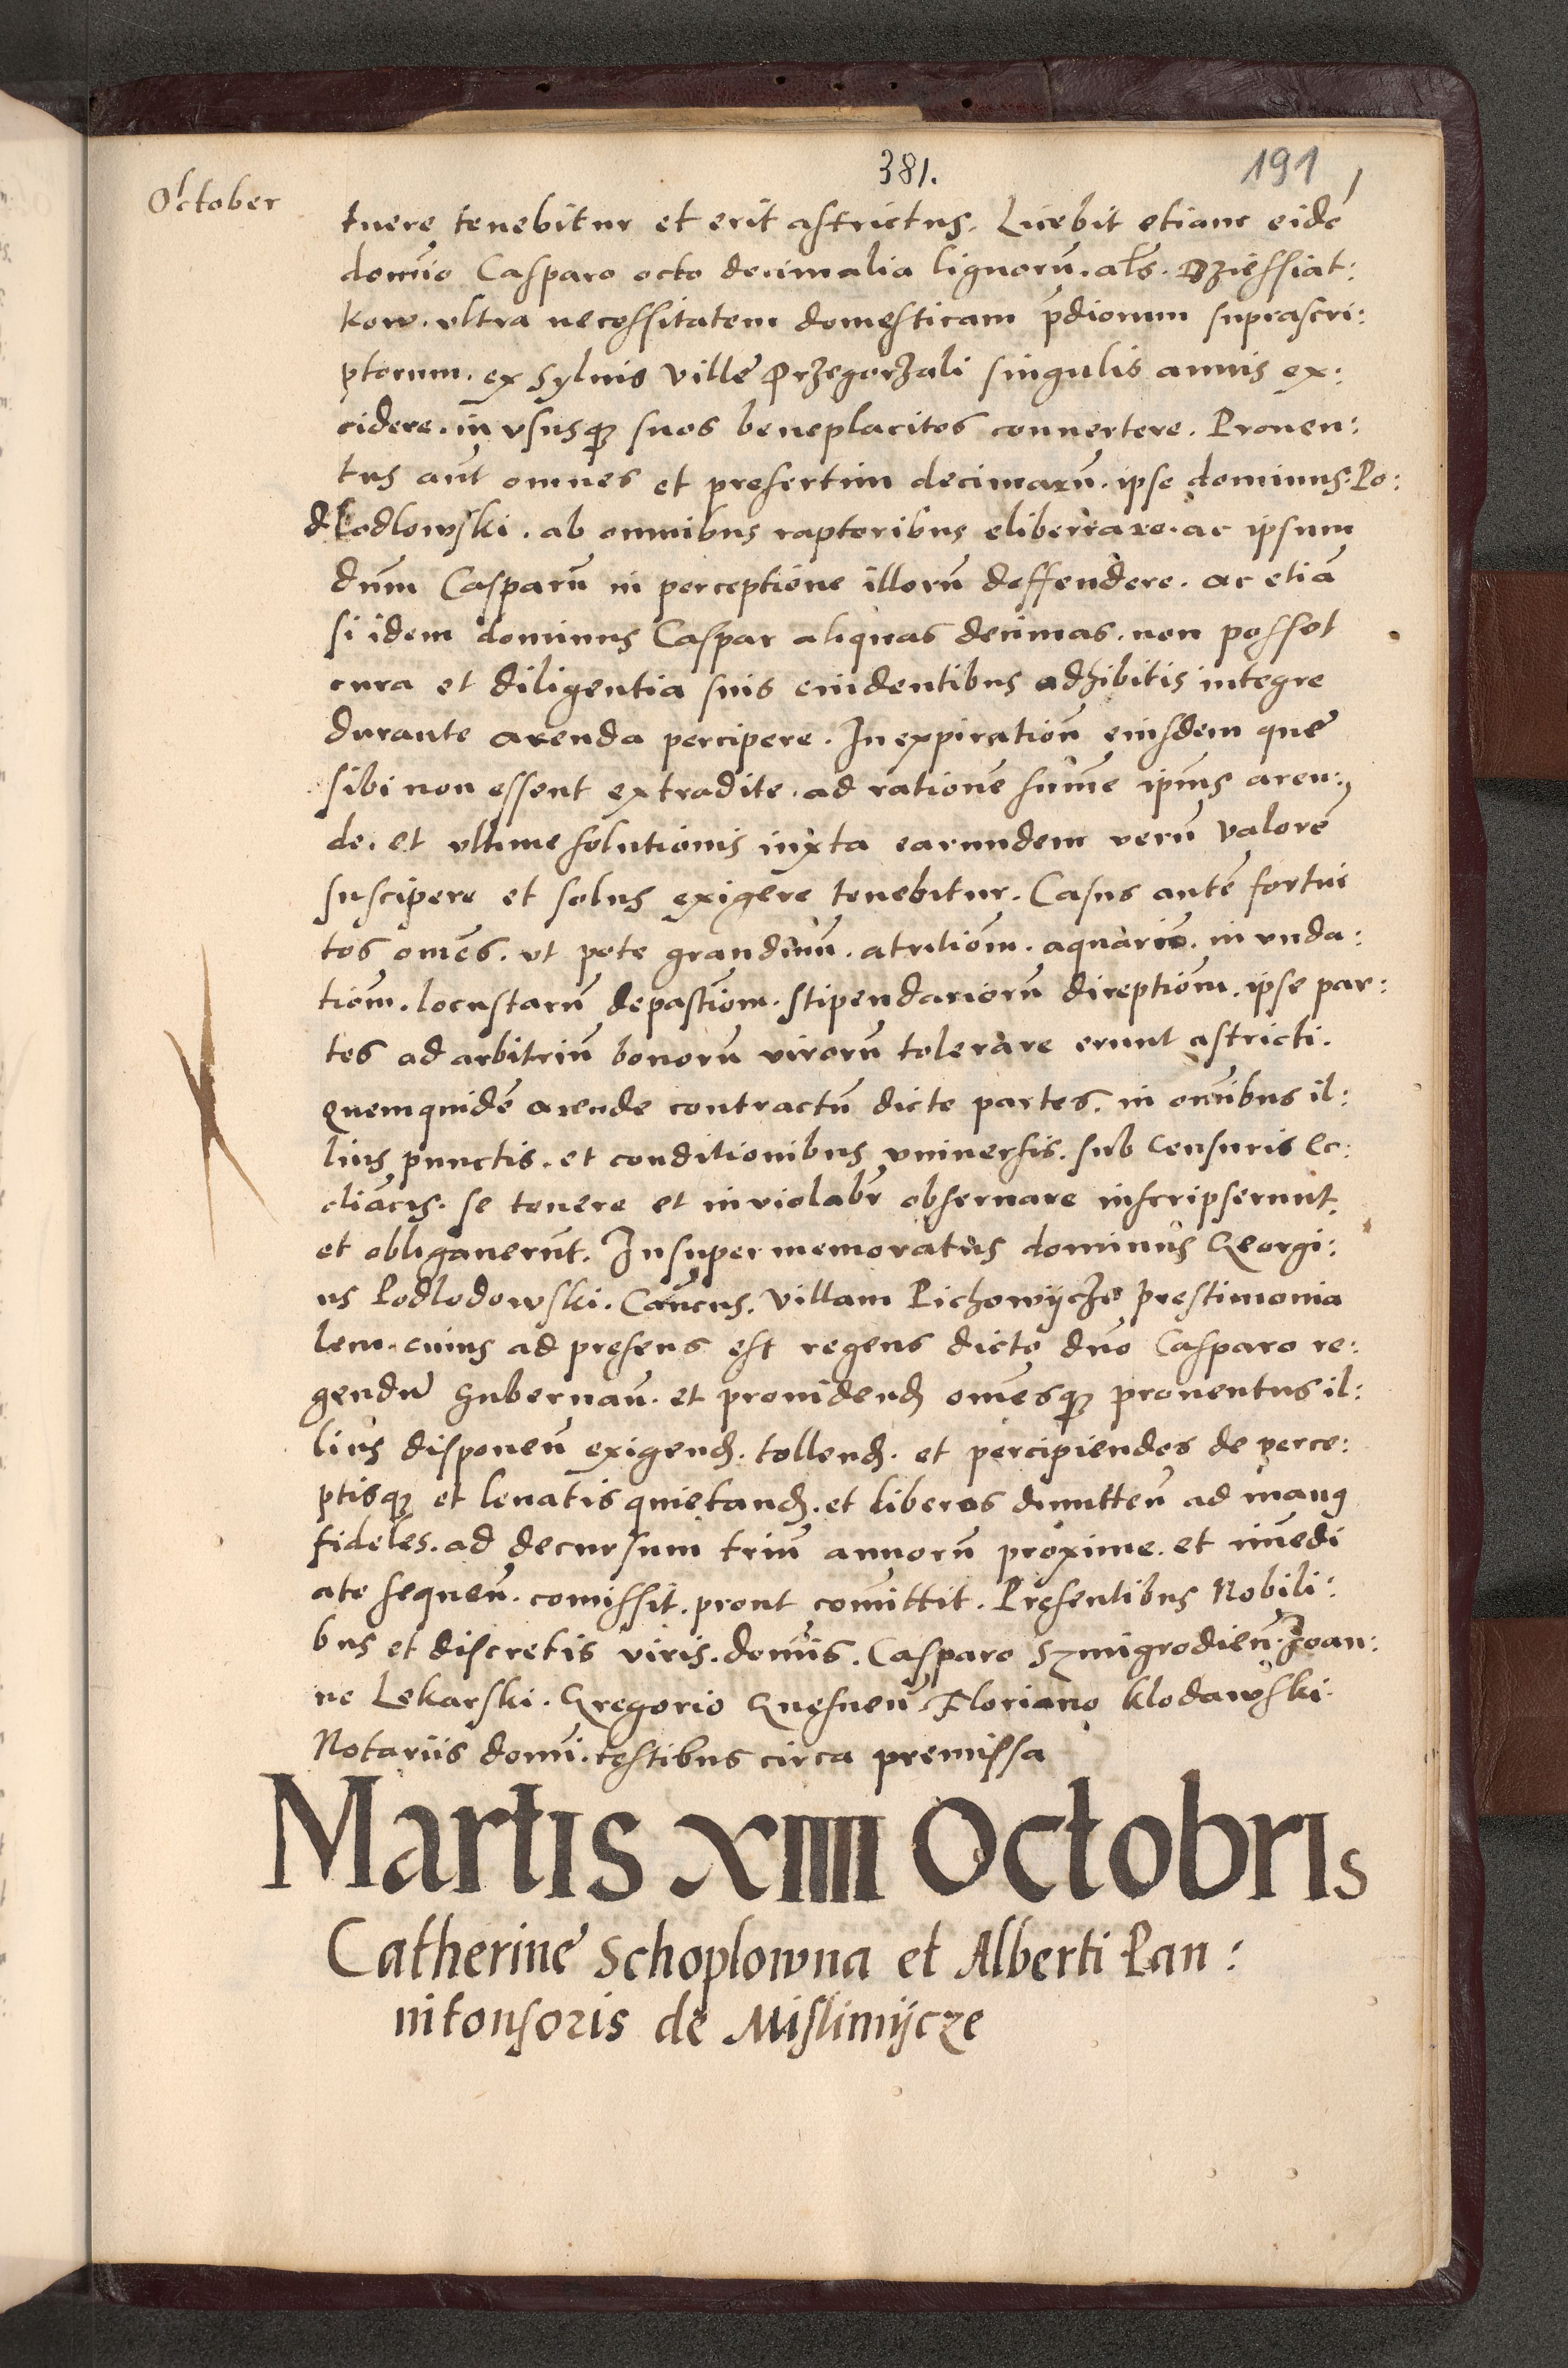 381.
191
October
tuere tenebitur et erit astrictus. Licebit etiam eidē
domīo Casparo octo decimalia lignorū. als. Dziessiat:
kow. vltra necessitatem domesticam p̄diorum suprascri:
ptorum. ex Syluis Ville Przegorzali singulis annis ex:
cidere. in vsusq3 suos beneplacitos conuertere. Prouen:
tus aūt omnes et presertim decimarū. ipse dominus. Po:
dlodowski. ab omnibus raptoribus eliberare. ac ipsum
dūm Casparū in perceptione illorū deffendere. ac etiā
si idem dominus Caspar aliquas decimas. non posset
cura et diligentia suis euidentibus adhibitis integre
durante arenda percipere. In expirationē eiusdem que
sibi non essent extradite. ad rationē sumē ipīus aren:
de. et vltime solutionis iuxta earundem verū valorē
suscipere et solus exigere tenebitur. Casus autē fortui
tos omēs. vt pote grandinū. atritiōm. aquarū. in vnda:
tiōm. locustarū depastiōm. stipendariorū direptiōm. ipse par:
tes ad arbitriū bonorū virorū tolerare erunt astricti.
Quemquidē arende contractū dicte partes. in omībus il:
lius punctis. et conditionibus vniuersis. sub Censuris Ec:
cliācis. se tenere et inviolabr̄ obseruare inscripserunt
et obligauerūt. Insuper memoratus dominus Georgi:
us Podlodowski. Cānicus. Villam Pichowijcze prestimonia
lem. cuius ad presens est regens dicto dno Casparo re:
gendū Gubernan̄. et prouidend omesq3 prouentus il:
lius disponen̄ exigend. tollend. et percipiendos de perce:
ptisq3 et leuatis quietand. et liberos dimitten̄ ad manus
fideles. ad decursum triū annorū proxime. et imēdi
ate sequen̄. comissit. prout comittit. Presentibus Nobili:
bus et discretis viris. domīs. Casparo Szmigrodien̄. Joan:
ne Lekarski. Gregorio Gnesnen̄. Floriano Klodawski.
Notariis domī. testibus circa premissa
Martis XIIII Octobris
Catherine Schoplowna et Alberti Pan:
nitonsoris de Mislimijcze